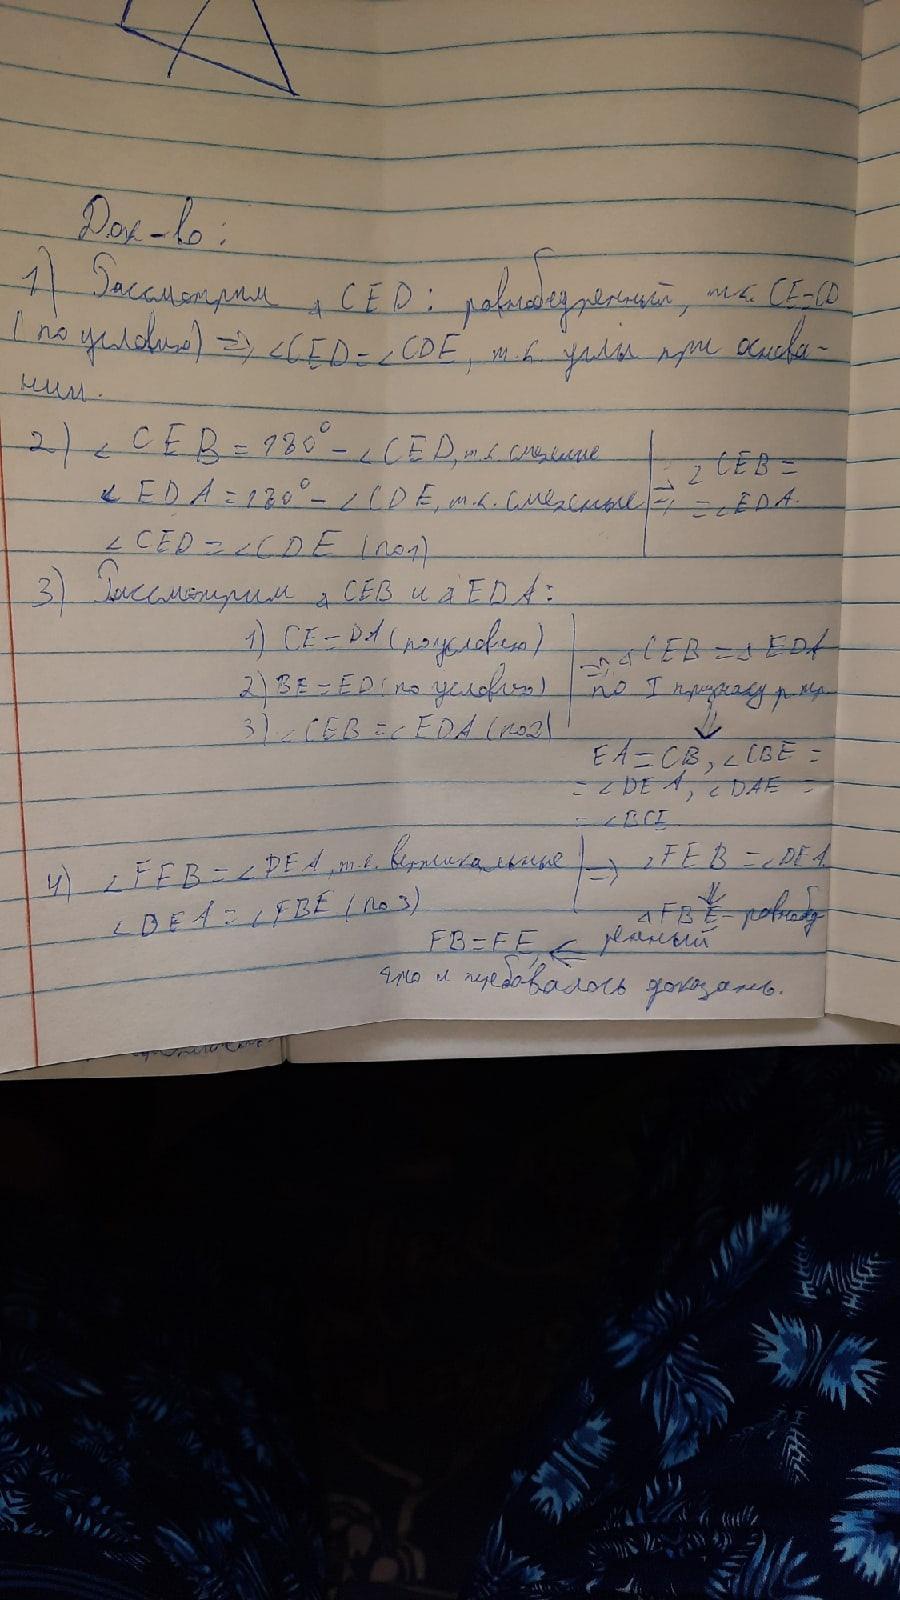 Док-во:
1) Рассмотрим △ CED: равнобедренный, т.к. CE=CD
(по условию) => ∠CED=∠CDE, т.к углы при основа-
нии.
2) ∠CEB = 180° - ∠CED, т.к. смежные
∠EDA = 180° - ∠CDE, т.к. смежные
∠CED = ∠CDE (по 1)
=> ∠CEB =
= ∠EDA.
3) Рассмотрим △ CEB и △ EDA:
1) CE = DA (по условию)
2) BE = ED (по условию)
3) ∠CEB = ∠EDA (по 2)
=> △ CEB = △ EDA
по I признаку р. тр.
EA = CB, ∠CBE =
= ∠DEA, ∠DAE =
= ∠BCE
4) ∠FEB = ∠DEA, т.к. вертикальные
∠DEA = ∠FBE (по 3)
=> ∠FEB = ∠DEA
△ FBE - равнобед
ренный
FB = FE,
что и требовалось доказать.